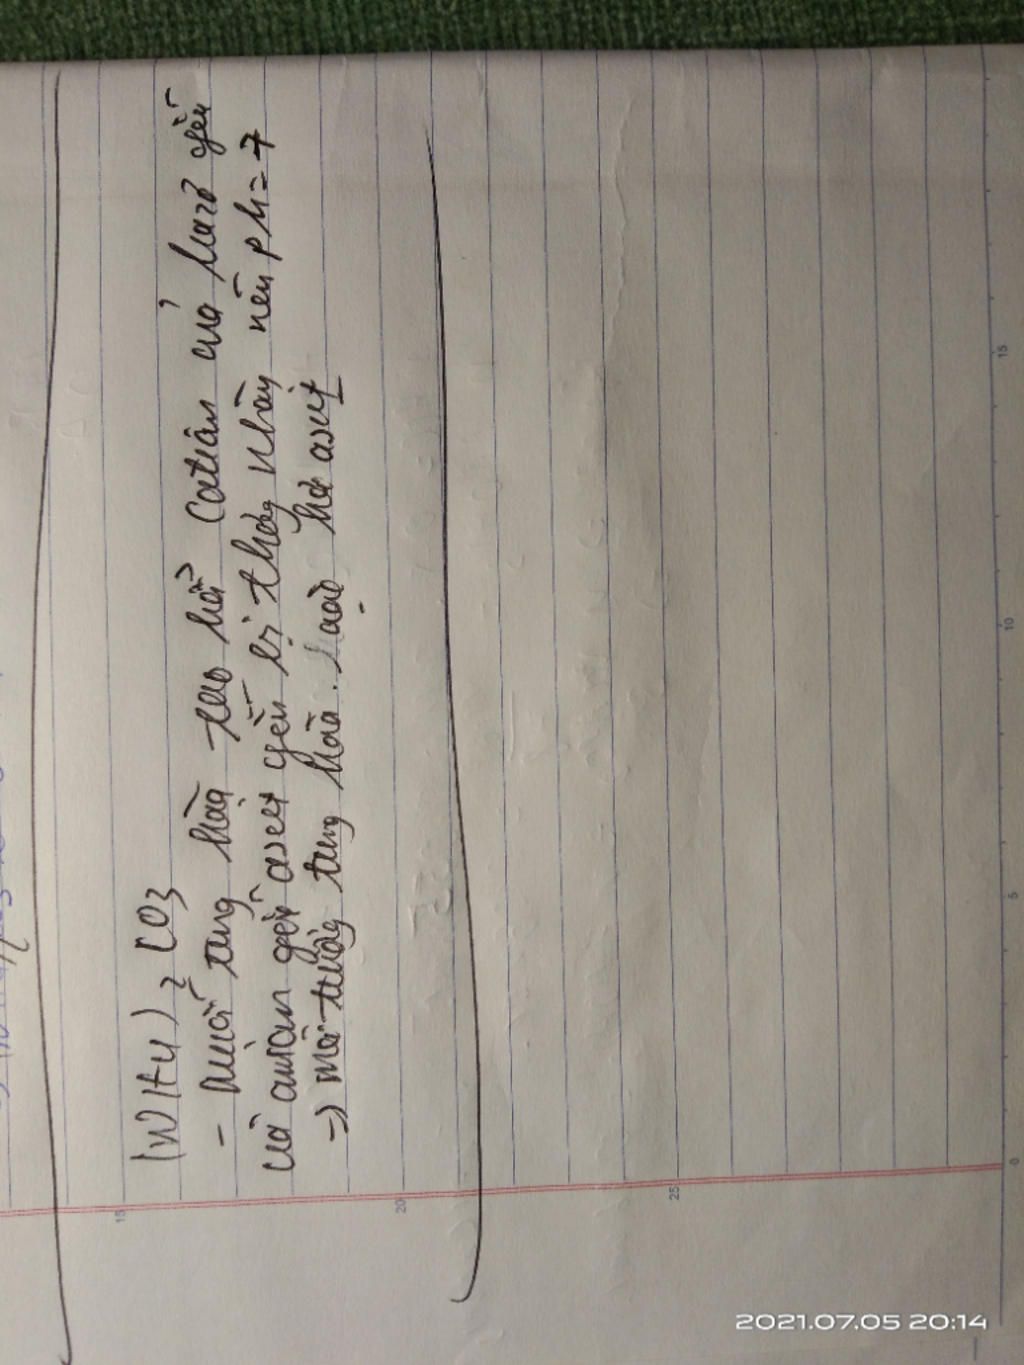 (NH4)2 CO3
- Muối trung hoà tạo bởi Cation của bazơ yếu
và anion gốc axit yếu bị thuỷ phân nên pH = 7
=> môi trường trung hoà. hoặc
15
20
25
0
5
10
15
2021.07.05 20:14